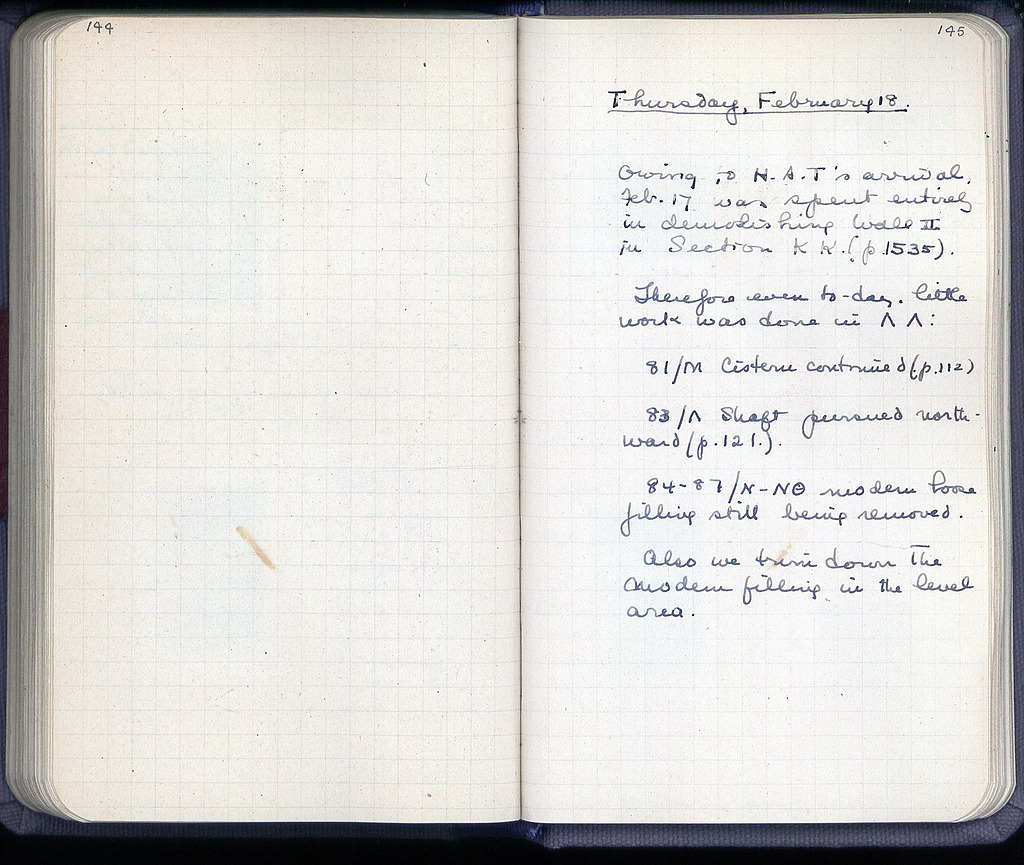 144
145
Thursday, February 18.
Owing to H.A.T's arrival,
Feb. 17 was spent entirely
in demolishing Wall II
in Section K K. (p.1535).
Therefore even to-day, little
work was done in Λ Λ:
81/M Cistern continued (p.112)
83/Λ Shaft pursued north-
ward (p.121.).
84-87/N-NΘ modern loose
filling still being removed.
Also we trim down the
modern filling in the level
area.